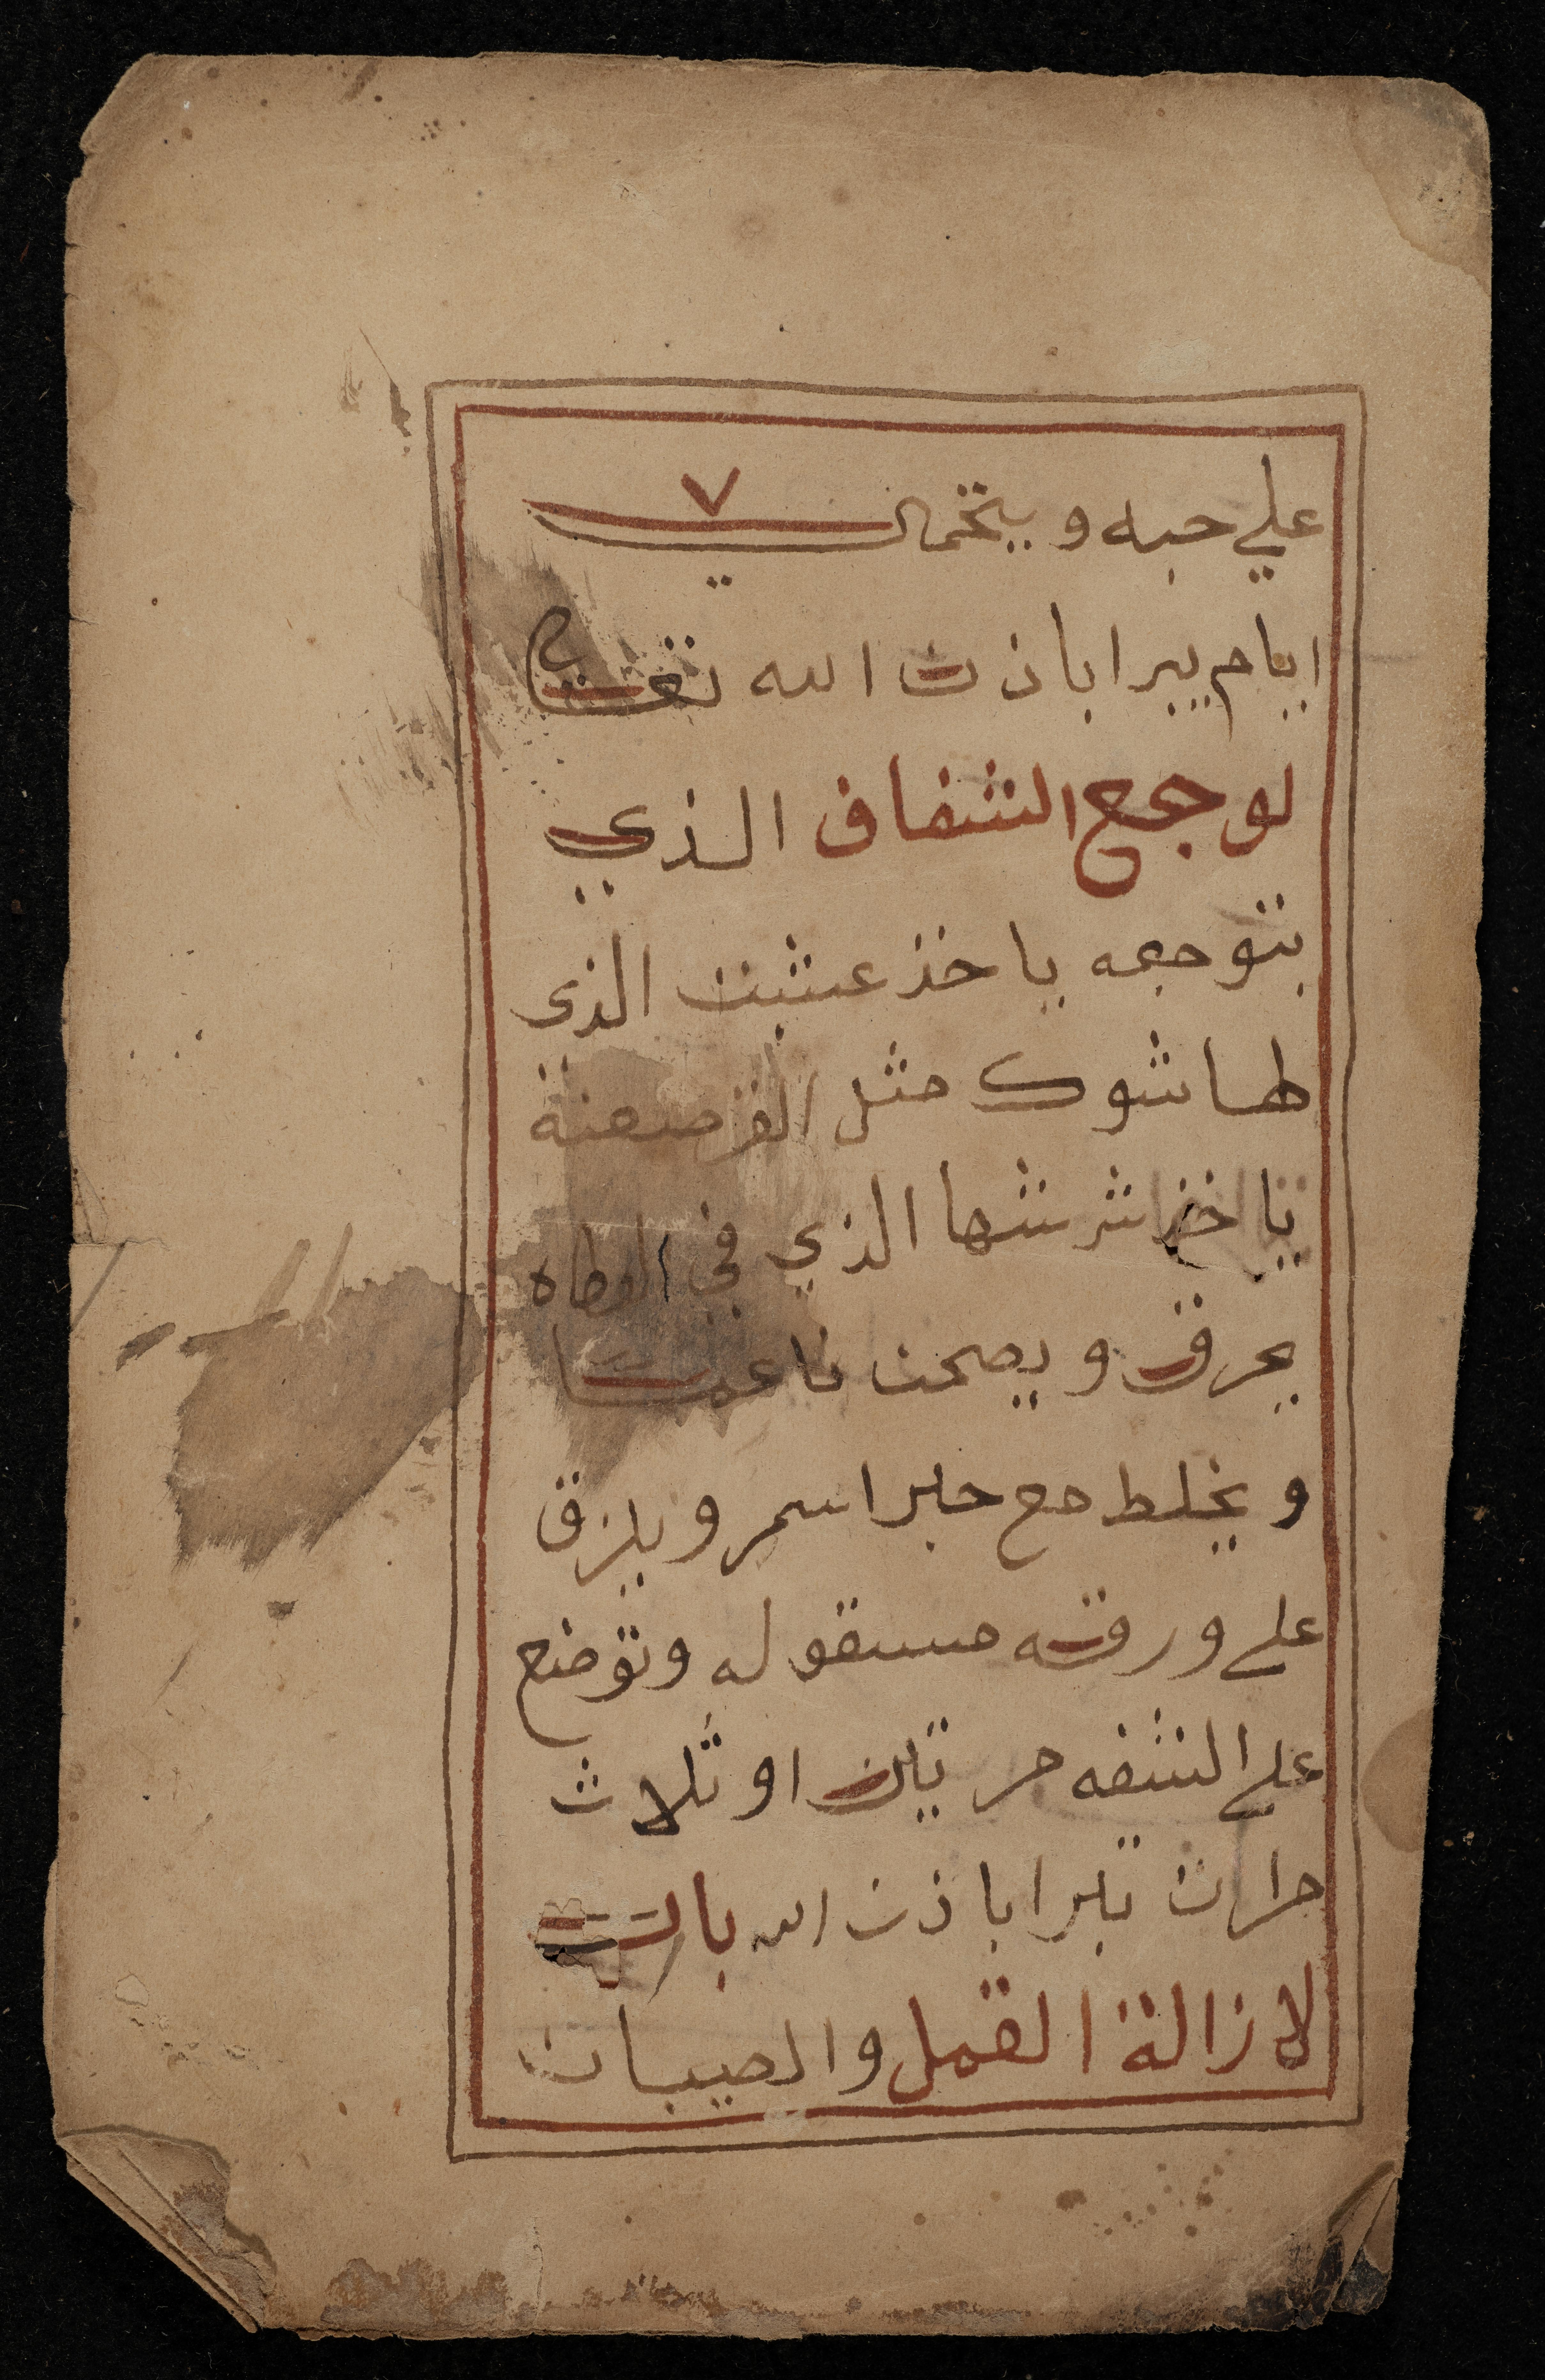 علي حبه ويتحمالي ٧
ايام يبرا باذن الله تعالي
لوجع الشفاف الذي
بتوجعه ياخذ عشبت الذي
لها شوك مثل القرصعنة
ياخذ شرشها الذي في الوطاه
يحرق ويصحن ناعما
ويخلط مع حبر اسمر ويلزق
على ورقه مسقوله وتوضع
على الشفه مرتين او ثلاث
مرات تبرا باذن الله باب
لازالة القمل والصيبان